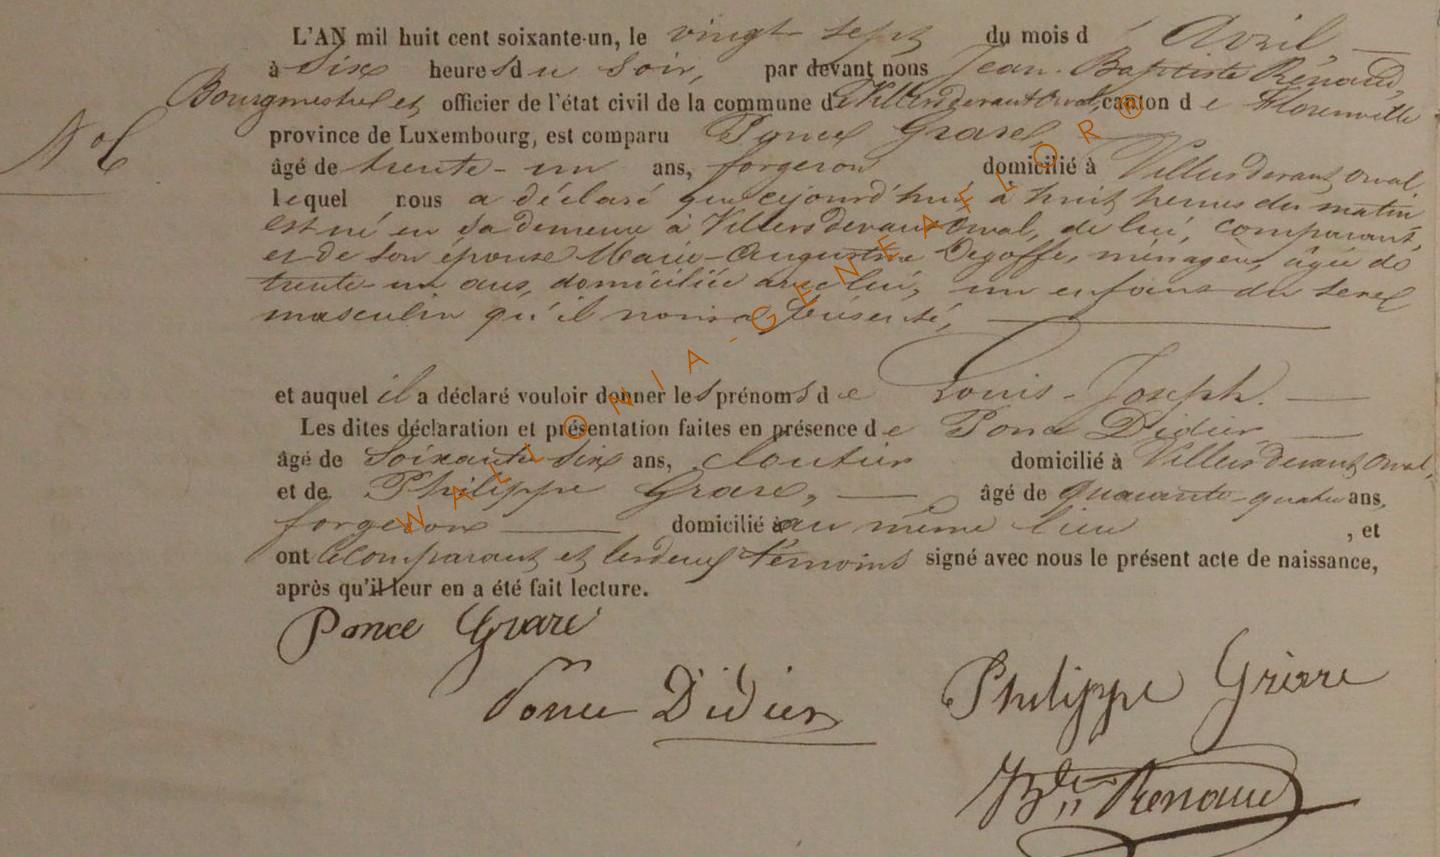 L'AN mil huit cent soixante-un, le vingt sept du mois d' Avril
à Six heures du soir, par devant nous Jean-Baptiste Rénaud,
Bourgmestre et officier de l'état civil de la commune de Villersdevantorval, canton de Florenville
province de Luxembourg, est comparu Ponce Grare
N° 6
âgé de trente-un ans, forgeron domicilié à Villersdevant orval,
lequel nous a déclaré que cejourd'hui à huit heures du matin
est né en sa demeure à Villersdevant orval, de lui, comparant,
et de son épouse Marie-Augustine Degoffe, ménagère, âgée de
trente-un ans, domiciliée avec lui, un enfant du sexe
masculin qu'il nous a présenté,
et auquel il a déclaré vouloir donner les prénoms de Louis-Joseph.
Les dites déclaration et présentation faites en présence de Ponce Didier
âgé de soixante-six ans, cloutier domicilié à Villersdevant orval,
et de Philippe Grare, âgé de quarante-quatre ans,
forgeron domicilié au même lieu, et
ont le comparant et les deux témoins signé avec nous le présent acte de naissance,
après qu'il leur en a été fait lecture.
Ponce Grare
Ponce Didier
Philippe Grare
JBte Renaud
WALLONIA-GENEAFLOR®